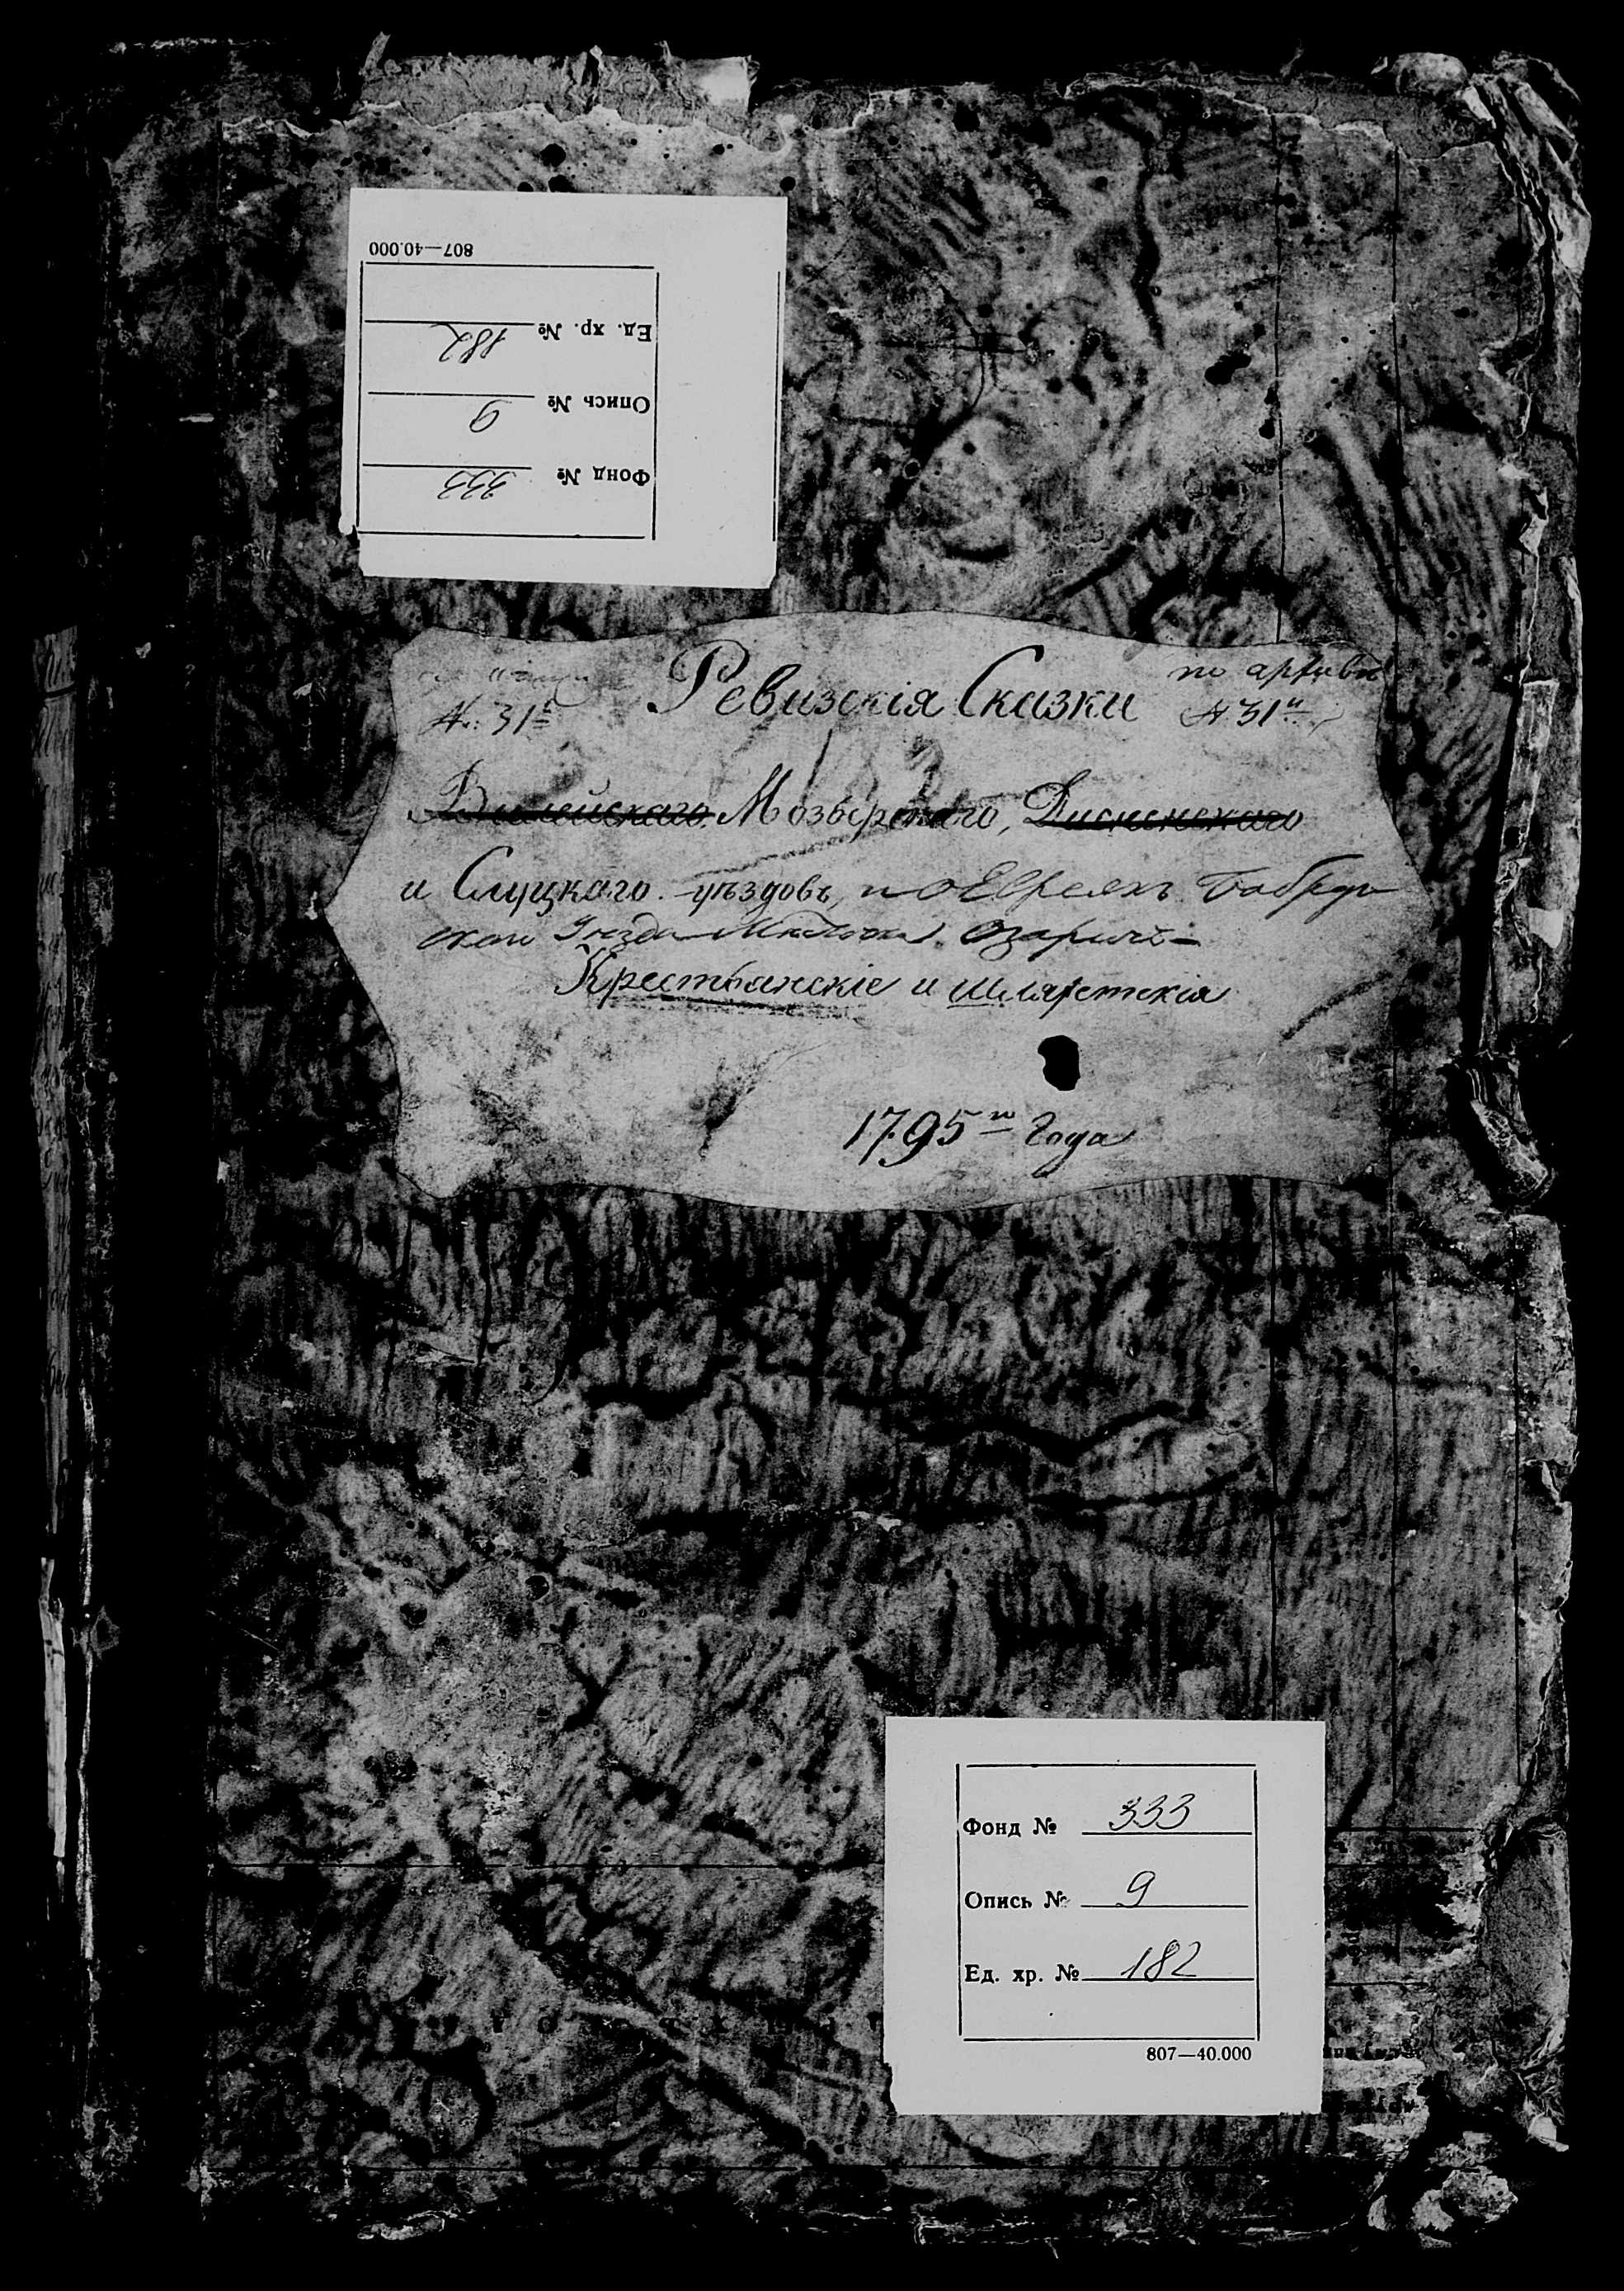 807—40.000
Ед. хр. № 182
Опись № 9
Фонд № 333
Ревизскія Сказки
по архиву
№. 31й
№ 31й
Вилейскаго Мозырскаго, Дисненскаго
и Слуцкаго уѣздовъ, и о Евреяхъ Бобруй
скаго Уезда Местечка Озаричь
Крестьянскіе и шляхетскія
1795го Года
Фонд № 333
Опись № 9
Ед. хр. № 182
807—40.000